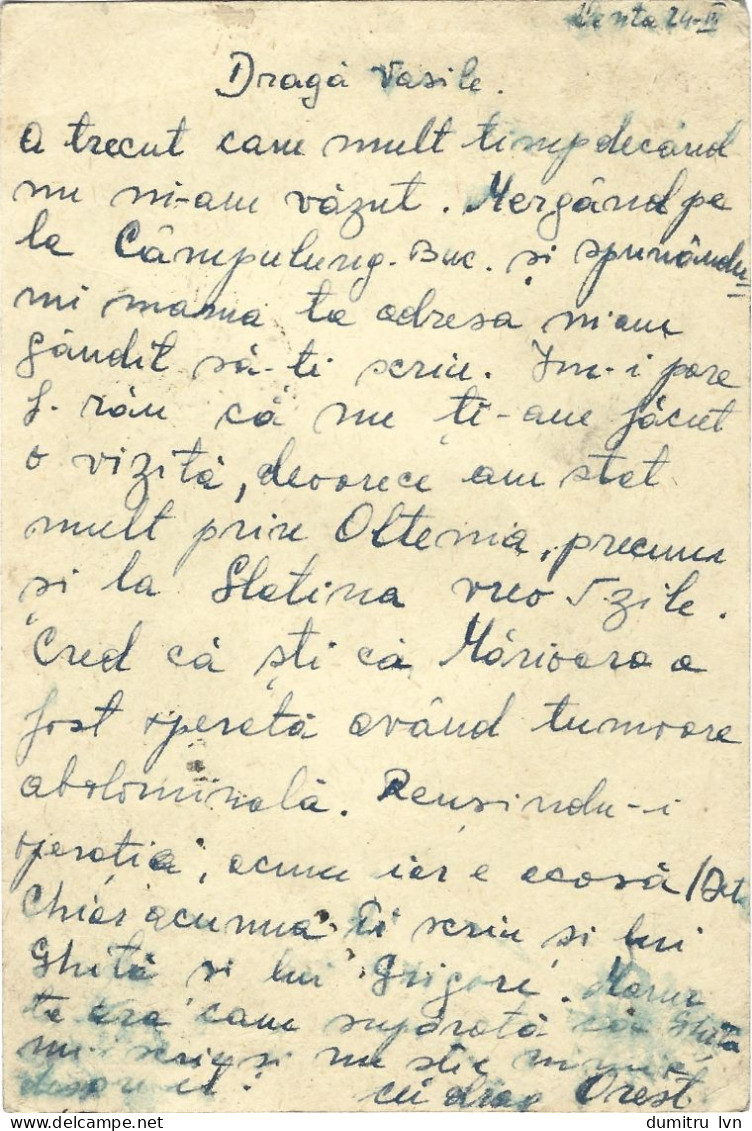 24-IV
Dragă Vasile.
a trecut cam mult timp decând
nu ni-am văzut. Mergând pe
la Câmpulung-Buc. și spunându-
mi mama ta adresa ni-am
gândit să-ti scriu. Îm-i pare
f. rău că nu ți-am făcut
o vizită, deoarece am stat
mult prin Oltenia, precum
și la Slatina vreo 5-zile.
Cred că ști că Mărioara a
fost operată având tumoare
abdominală. Reusindu-i
operația, acum iar e acasă
Chiar acumă ti scriu și lui
Ghită si lui Grigore. Mama
ta era cam supărată că Ghită
nu scrie si nu stie nimic
cu drag Orest
dumitru_lvn